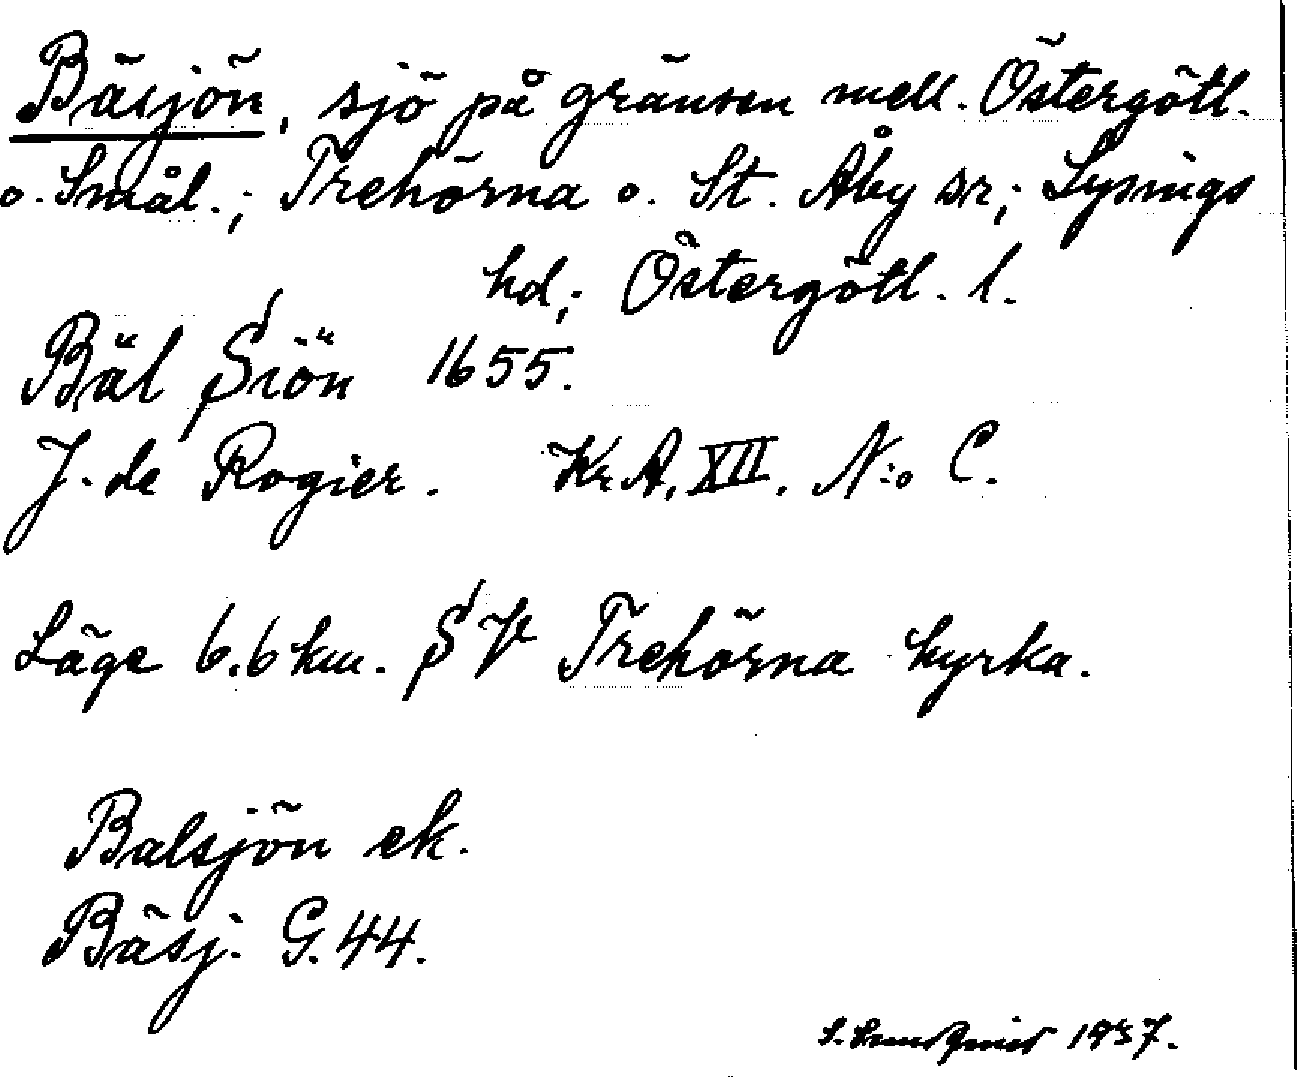 Bäsjön, sjö på gränsen mell. Östergötl.
o. Smål.; Trehörna o. St. Åby sr; Lysings
hd; Östergötl. l.
Bäl Siön 1655.
J. de Rogier. Kr.A. XIII. N:o C.
Läge 6.6 km. SV Trehörna kyrka.
Balsjön ek.
Bäsj. G. 44.
S. 1937.